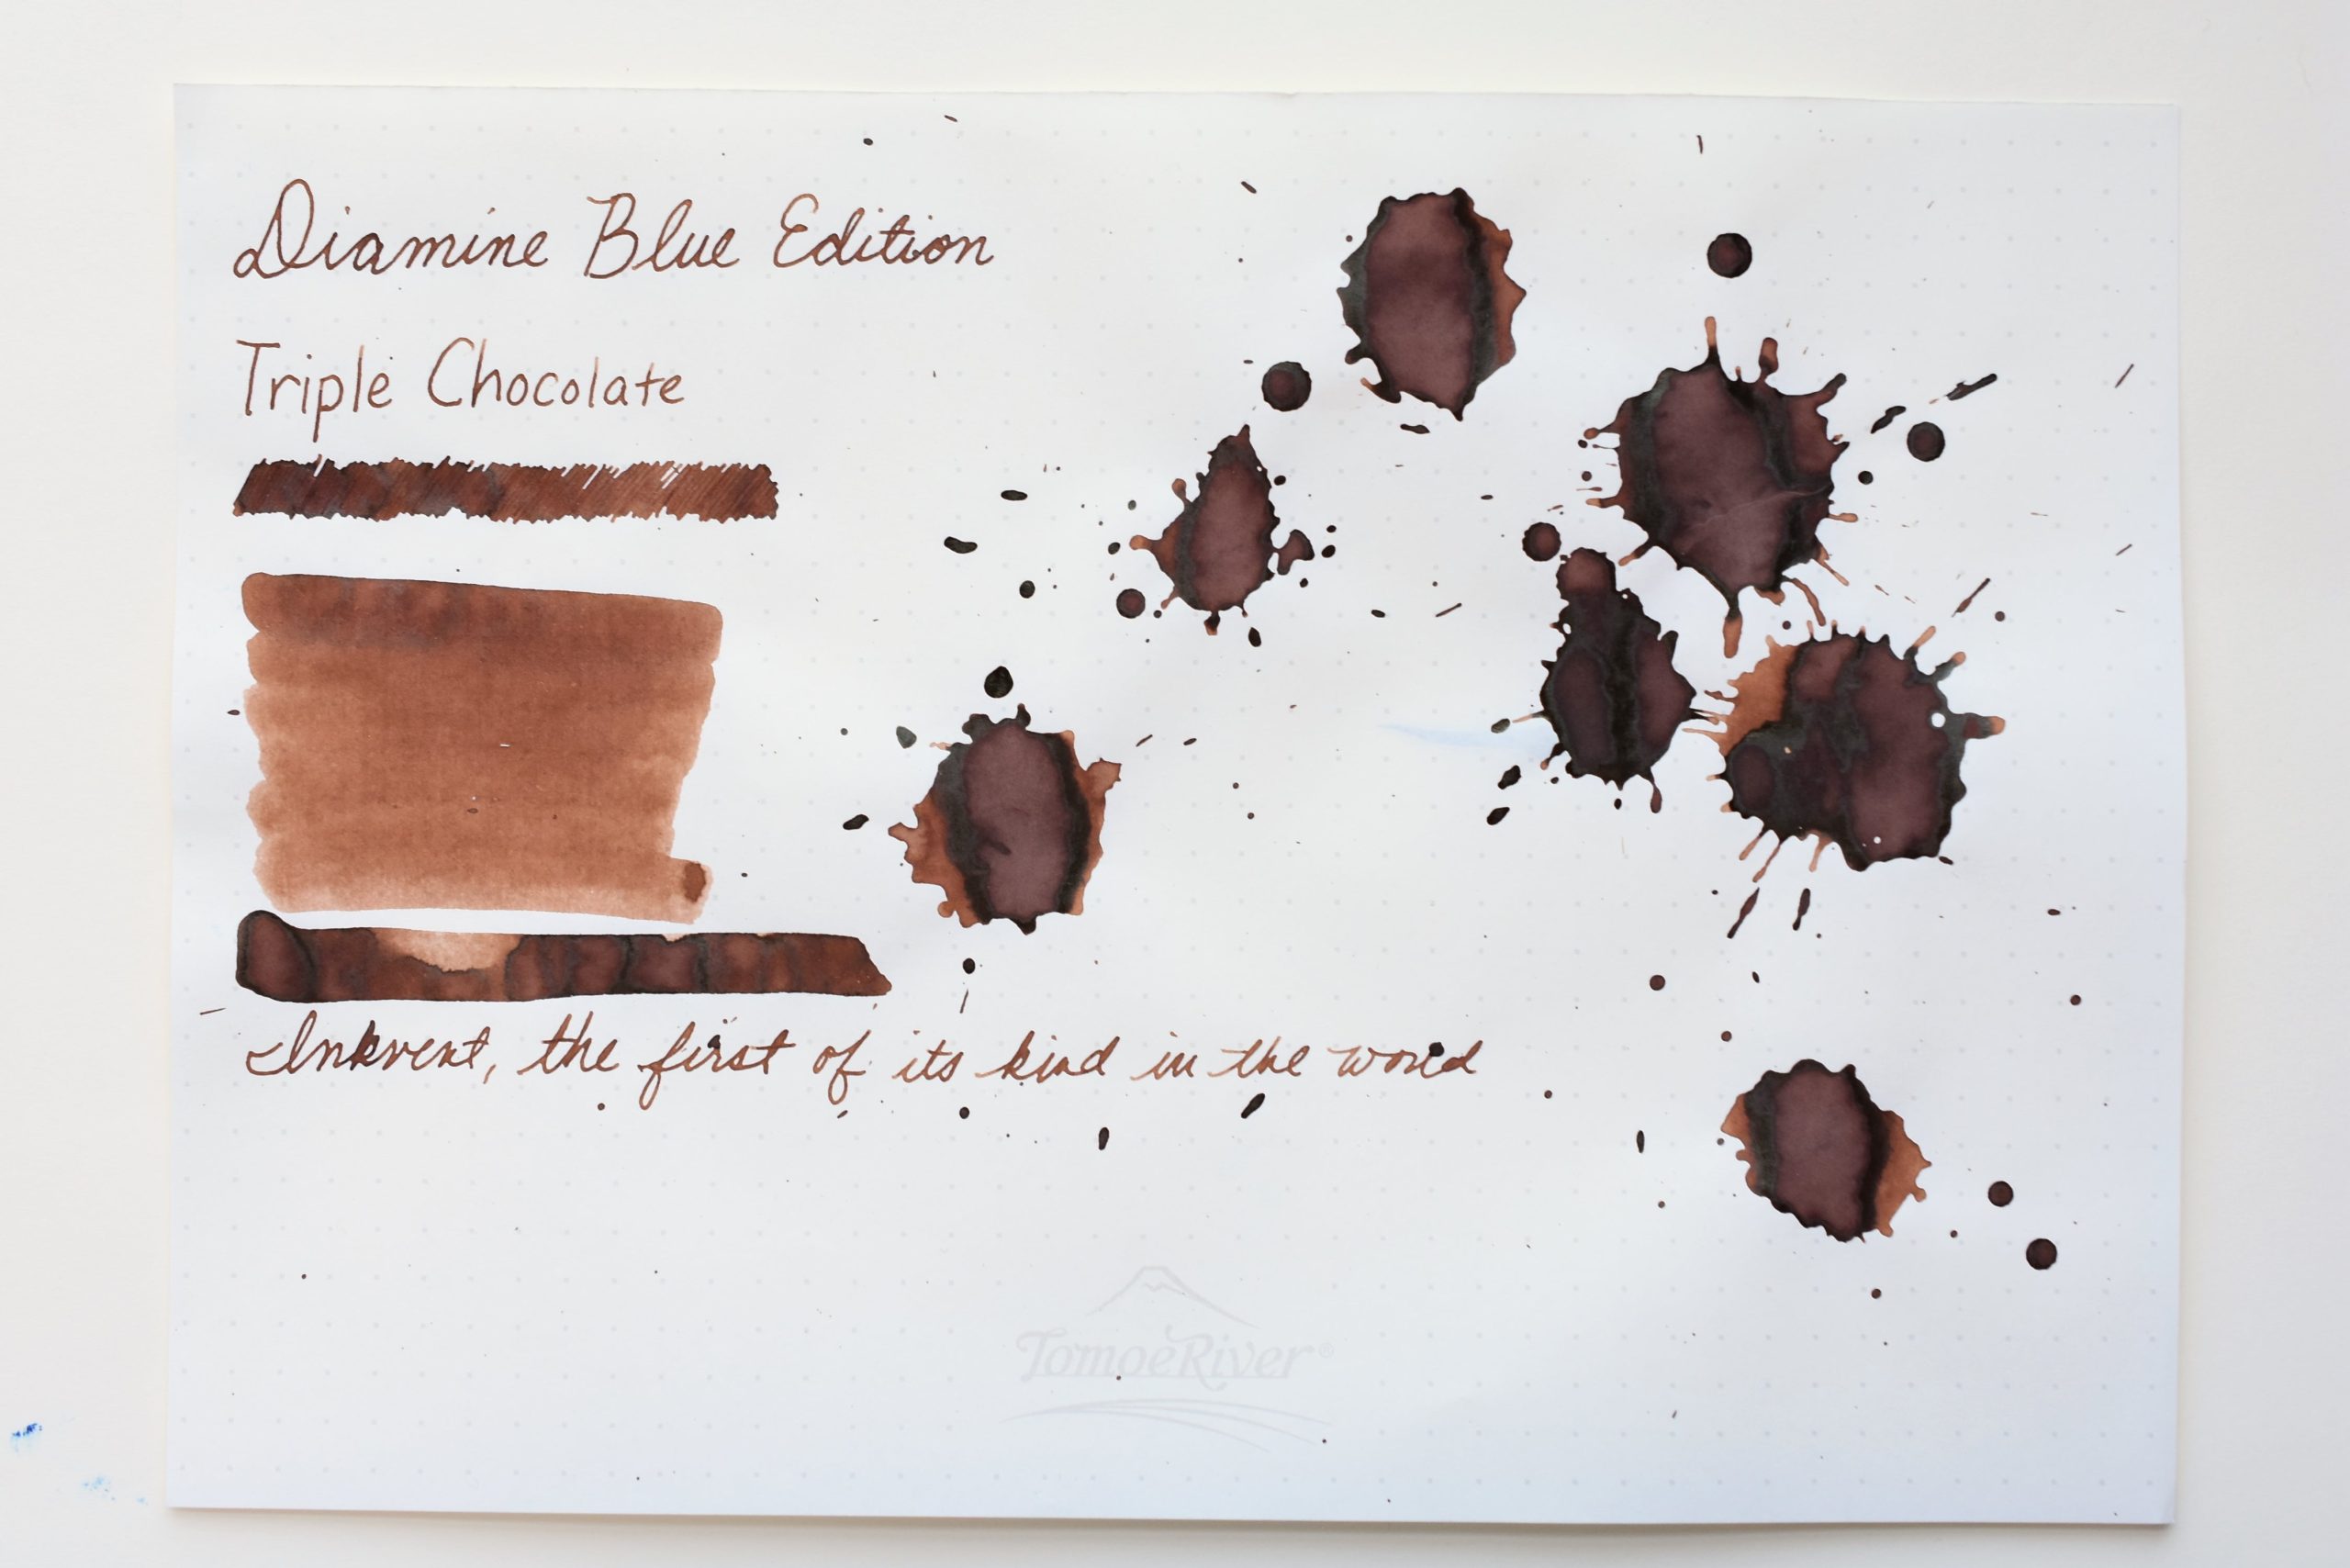 Diamine Blue Edition
Triple Chocolate
Inkvent, the first of its kind in the world
TomoeRiver®